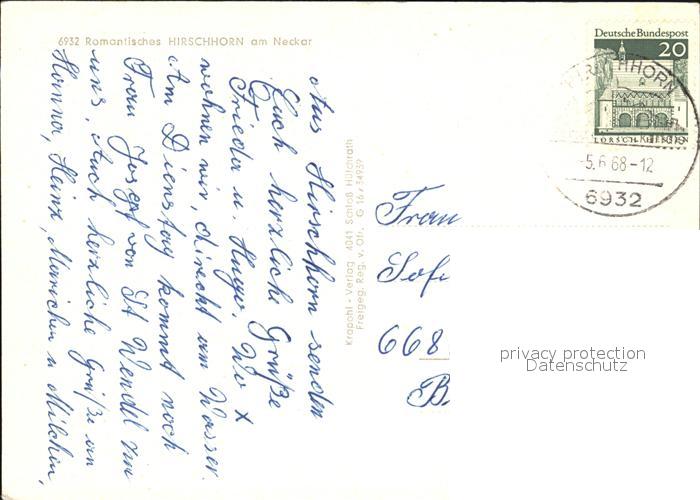 6932 Romantisches HIRSCHHORN am Neckar
Aus Hirschhorn senden
Euch herzliche Grüße
Frieder u. Hugo. Wo x
wohnen wir, direckt am Wasser.
Am Dienstag kommt noch
Frau Josef von St Wendel zu
uns. Auch herzliche Grüße an
Hanna, Heinz, Mariechen u
Krapohl-Verlag 4041 Schloß Hülchrath
Freigeg. Reg. v. Ofr. G 16/34939
Deutsche Bundespost
20
LORSCH HESSEN
HIRSCHHORN
-5.6.68-12
6932
Frau
Sofi
668
B
privacy protection
Datenschutz